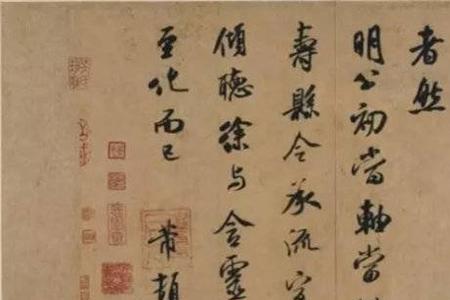 者然
明公初當軸當
壽縣令承流宣
傾聽徐与含靈
至化而已
芾頓